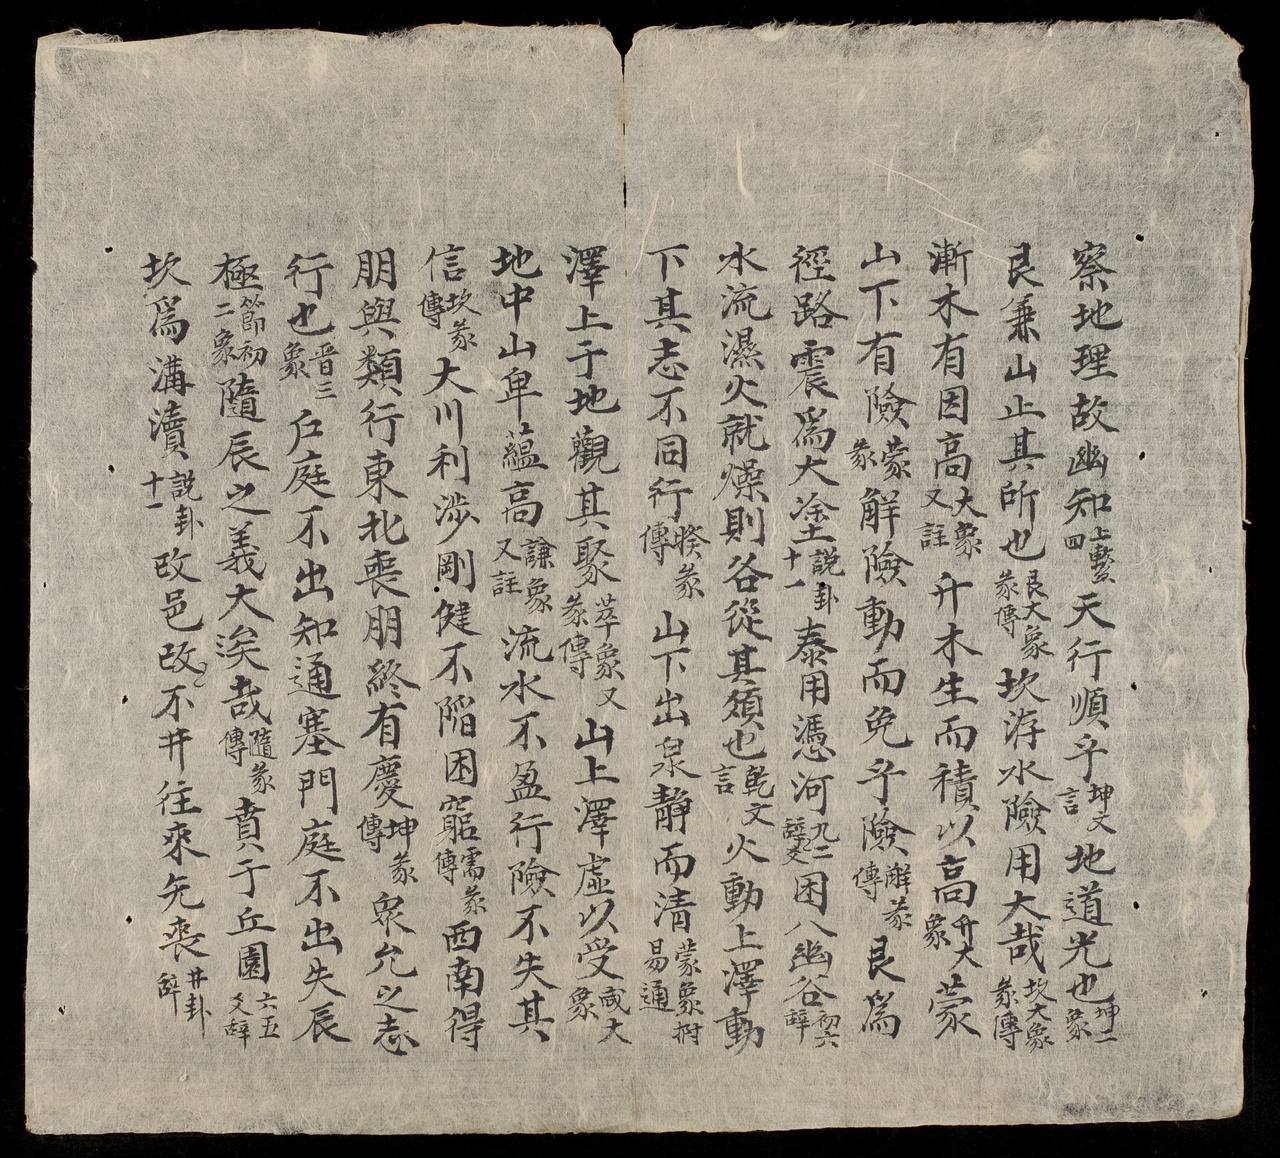 察地理故幽知上繫四天行順乎坤文言地道光也坤二象
艮兼山止其所也艮大象彖傳坎洊水險用大哉坎大象彖傳
漸木有因高大象又註升木生而積以高升大象蒙
山下有險蒙彖解險動而免乎險解彖傳艮爲
徑路震爲大塗說卦十一泰用馮河九二爻辭困入幽谷初六辭
水流濕火就燥則各從其類也乾文言火動上澤動
下其志不同行睽彖傳山下出泉靜而清蒙象附易通
澤上于地觀其聚萃象又彖傳山上澤虛以受咸大象
地中山卑蘊高謙象又註流水不盈行險不失其
信坎彖傳大川利涉剛健不陷困窮需彖傳西南得
朋與類行東北喪朋終有慶坤彖傳衆允之志
行也晋三象戶庭不出知通塞門庭不出失辰
極節初二象隨辰之義大矣哉隨彖傳賁于丘園六五爻辭
坎爲溝瀆說卦十一改邑改〻不井往來无喪井卦辭